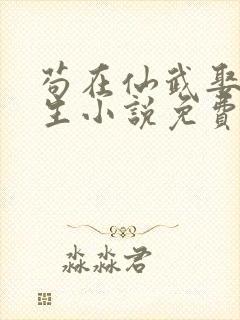 苟在仙武娶
生小說免費
淼淼君